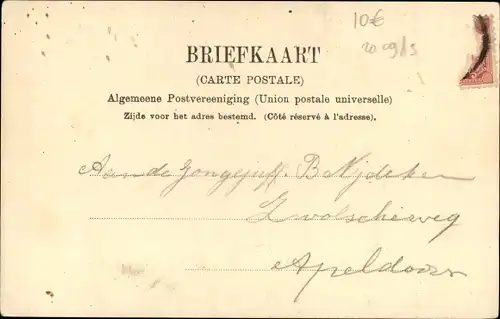 10€
20 09/15
BRIEFKAART
(CARTE POSTALE)
Algemeene Postvereeniging (Union postale universelle)
Zijde voor het adres bestemd. (Côté réservé à l'adresse).
Aan de Jongejuff. B Nijdeken
Zwolscheweg
Apeldoorn